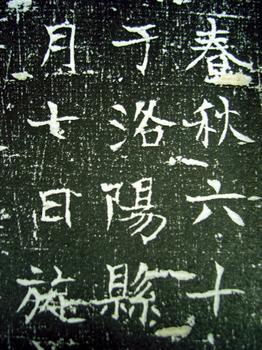 春秋六十
于洛陽縣
月七日旋